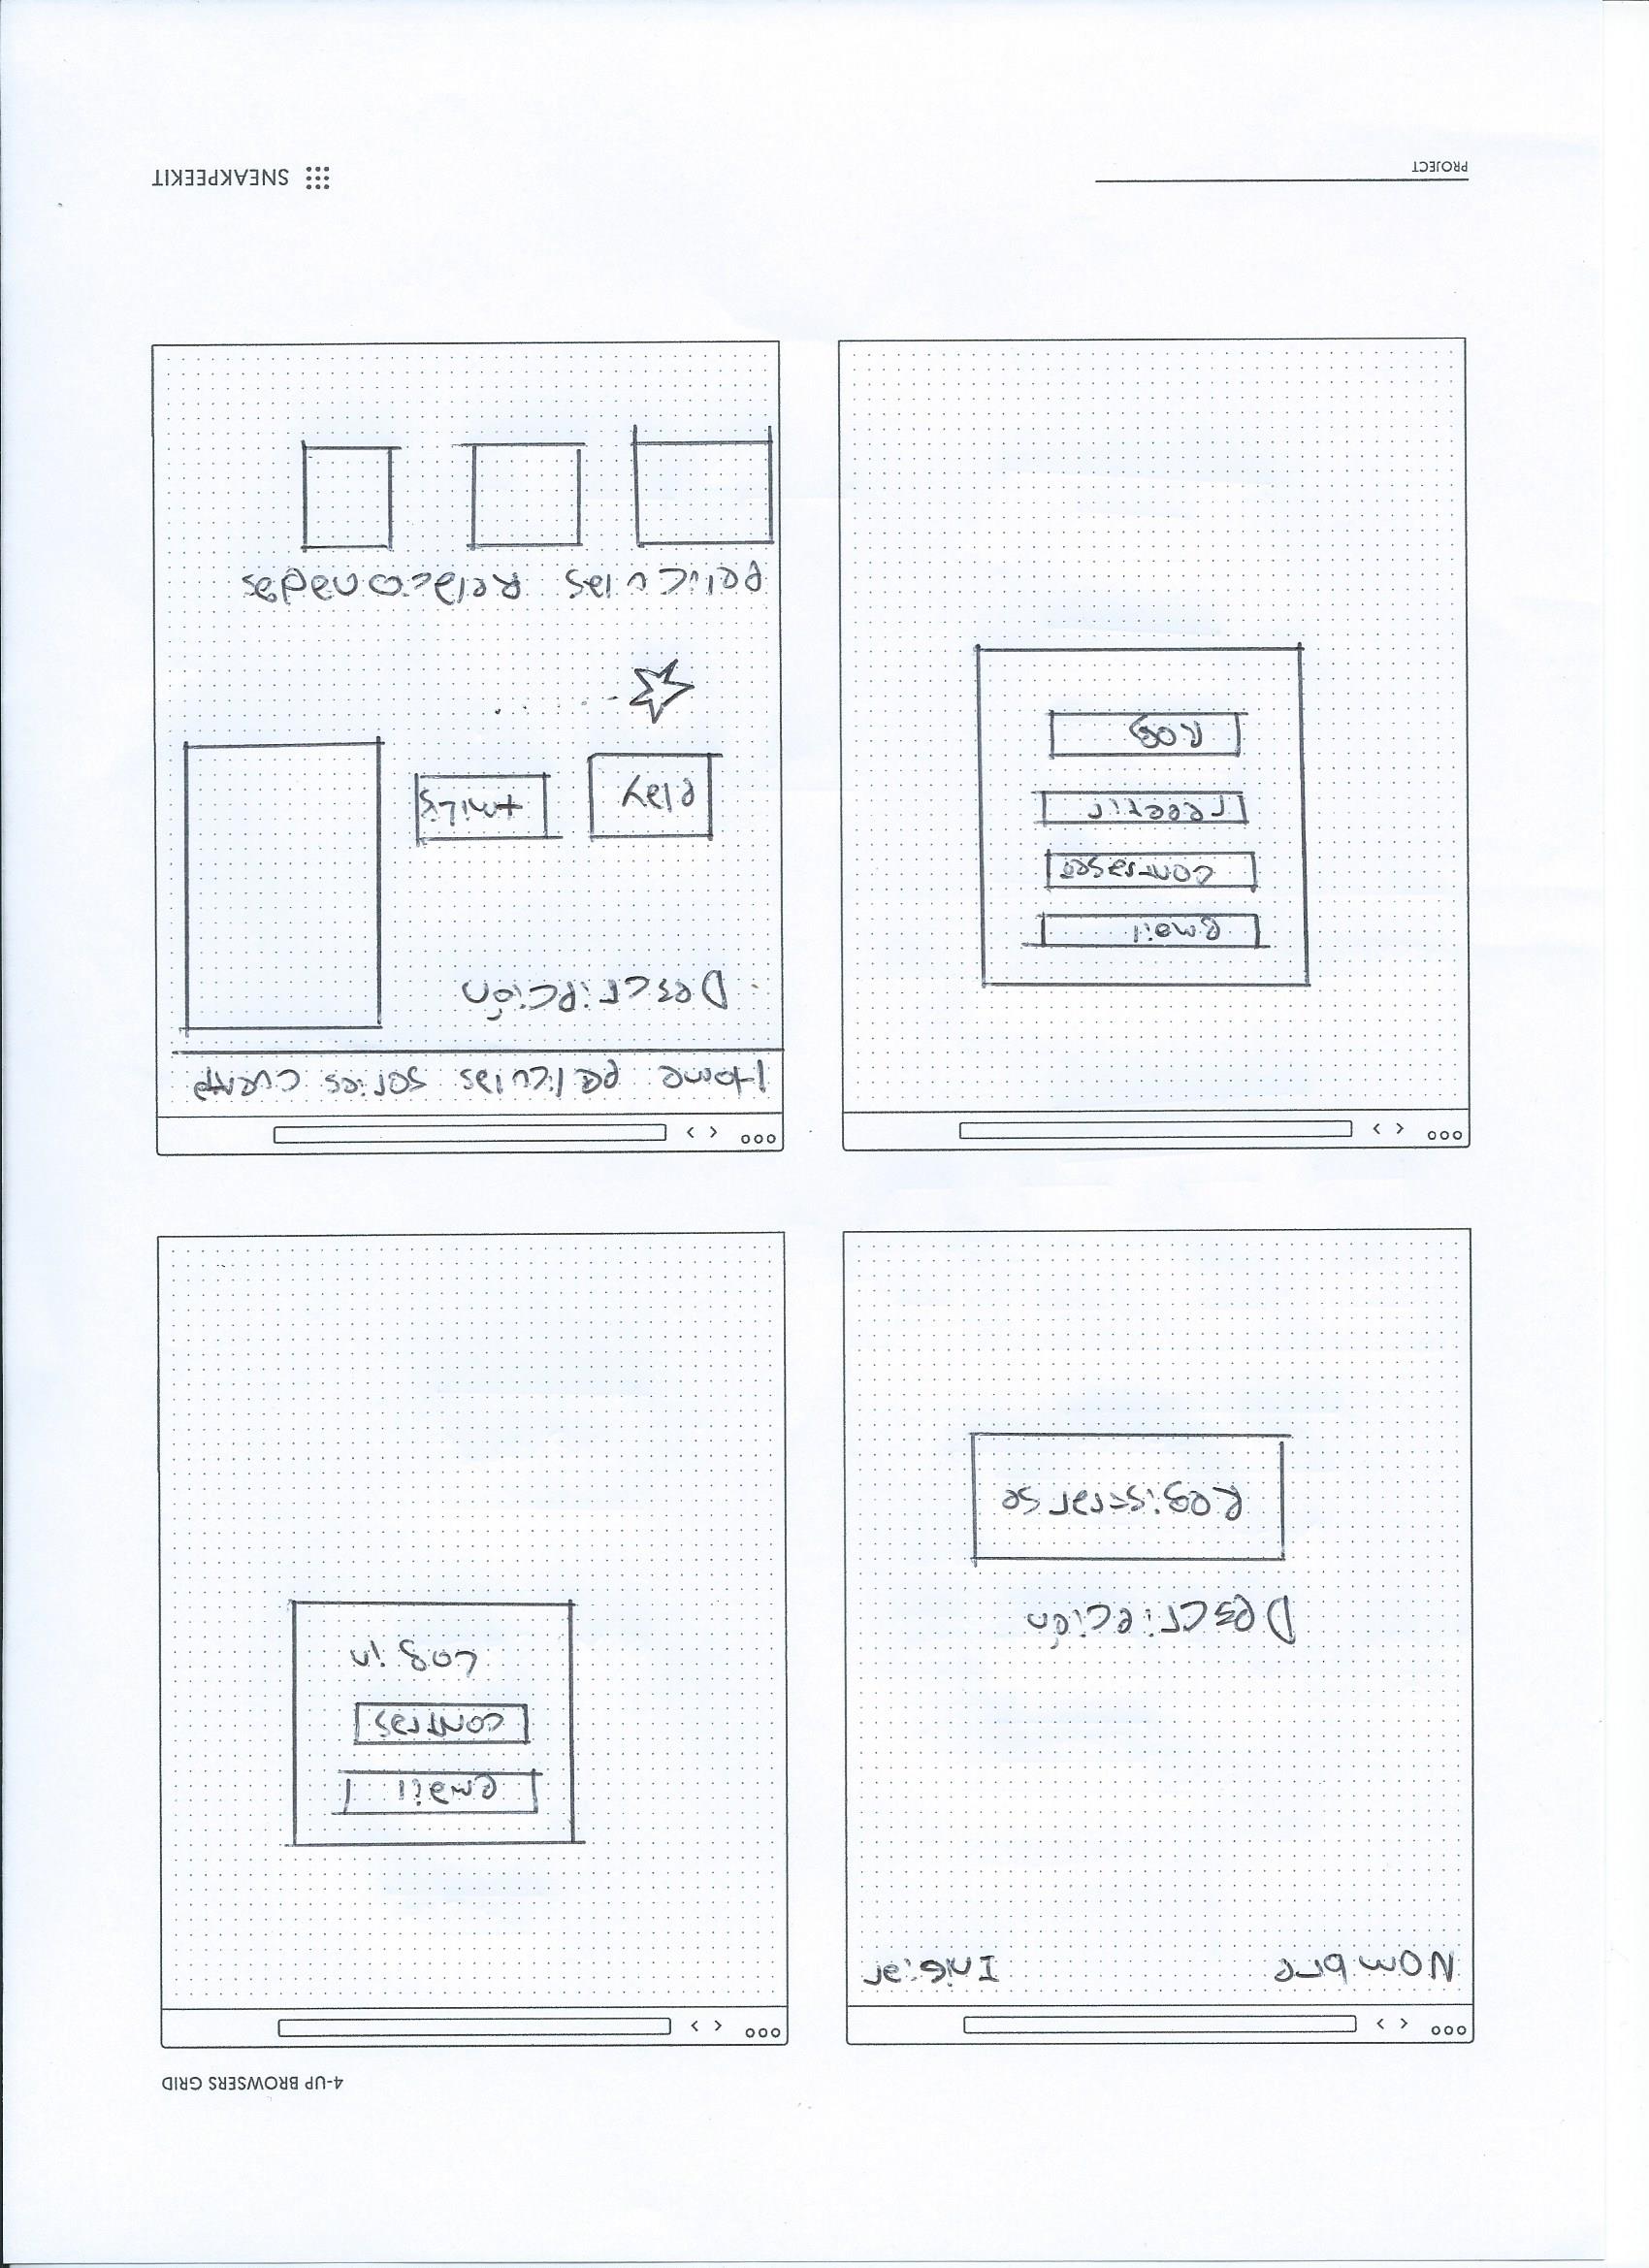 4-UP BROWSERS GRID
Nombre Iniciar
Descripción
Registrarse
email
contras
Log in
email
contraseñ
repetir
Reg
Home peliculas series cuenta
Descripción
play +miLis
peliculas Relacionadas
PROJECT
SNEAKPEEKIT